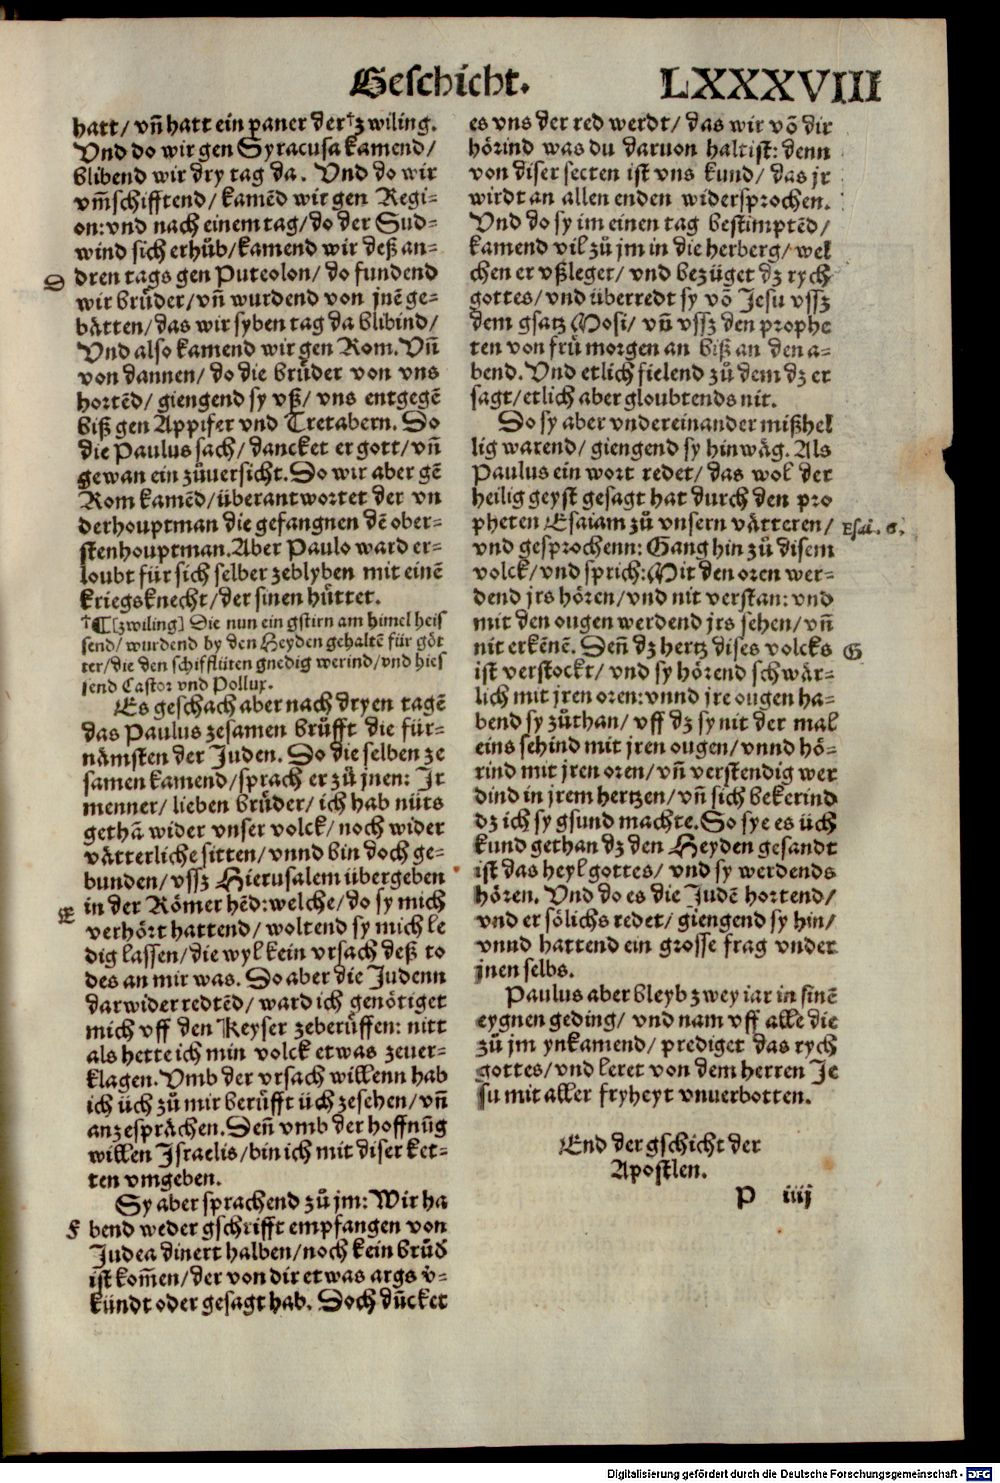 Geschicht. LXXXVIII
hatt/ vñ hatt ein paner der †zwiling.
Vnd do wir gen Syracusa kamend/
blibend wir dry tag da. Vnd do wir
vm̃schifftend/ kamẽd wir gen Regi-
on: vnd nach einem tag/ do der Sud-
wind sich erhůb/ kamend wir deß an-
D dren tags gen Puteolon/ do fundend
wir brüder/ vñ wurdend von jnẽ ge-
bätten/ das wir syben tag da blibind/
Vnd also kamend wir gen Rom. Vñ
von dannen/ do die brüder von vns
hortẽd/ giengend sy vß/ vns entgegẽ
biß gen Appifer vnd Tretabern. Do
die Paulus sach/ dancket er gott/ vñ
gewan ein zůuersicht. Do wir aber gẽ
Rom kamẽd/ überantwortet der vn
derhouptman die gefangnen dẽ ober-
stenhouptman. Aber Paulo ward er-
loubt für sich selber zeblyben mit einẽ
kriegsknecht/ der sinen hüttet.
†¶ [zwiling] Die nun ein gstirn am himel heis
send/ wurdend by den Heyden gehaltẽ für göt
ter/ die den schifflüten gnedig werind/ vnd hies
send Castor vnd Pollux.
Es geschach aber nach dryen tagẽ
das Paulus zesamen brüfft die für-
nämsten der Juden. Do die selben ze
samen kamend/ sprach er zů jnen: Jr
menner/ lieben brüder/ ich hab nüts
gethã wider vnser volck/ noch wider
vätterliche sitten/ vnnd bin doch ge-
bunden/ vssz Hierusalem übergeben
E in der Römer hẽd: welche/ do sy mich
verhört hattend/ woltend sy mich le
dig lassen/ die wyl kein vrsach deß to
des an mir was. Do aber die Judenn
darwider redtẽd/ ward ich genötiget
mich vff den Keyser zeberüffen: nitt
als hette ich min volck etwas zeuer-
klagen. Vmb der vrsach willenn hab
ich üch zů mir berüfft üch zesehen/ vñ
anzesprächen. Deñ vmb der hoffnũg
willen Israelis/ bin ich mit diser ket-
ten vmgeben.
Sy aber sprachend zů jm: Wir ha
F bend weder gschrifft empfangen von
Judea dinert halben/ noch kein brůd
ist kom̃en/ der von dir etwas args v-
kündt oder gesagt hab. Doch dũcket
es vns der red werdt/ das wir võ dir
hörind was du daruon haltist: denn
von diser secten ist vns kund/ das jr
wirdt an allen enden widersprochen.
Vnd do sy im einen tag bestimptẽd/
kamend vil zů jm in die herberg/ wel
chen er vßleger/ vnd bezüget dz rych
gottes/ vnd überredt sy võ Jesu vssz
dem gsatz Mosi/ vñ vssz den prophe
ten von frů morgen an biß an den a-
bend. Vnd etlich fielend zů dem dz er
sagt/ etlich aber gloubtends nit.
Do sy aber vndereinander mißhel
lig warend/ giengend sy hinwäg. Als
Paulus ein wort redet/ das wol der
heilig geyst gesagt hat durch den pro
pheten Esaiam zů vnsern vätteren/ Esai. 6.
vnd gesprochenn: Gang hin zů disem
volck/ vnd sprich: Mit den oren wer-
dend jrs hören/ vnd nit verstan: vnd
mit den ougen werdend jrs sehen/ vñ
nit erkẽnẽ. Deñ dz hertz dises volcks G
ist verstockt/ vnd sy hörend schwär-
lich mit jren oren: vnnd jre ougen ha-
bend sy zůthan/ vff dz sy nit der mal
eins sehind mit jren ougen/ vnnd hö-
rind mit jren oren/ vñ verstendig wer
dind in jrem hertzen/ vñ sich bekerind
dz ich sy gsund machte. So sye es üch
kund gethan dz den Heyden gesandt
ist das heyl gottes/ vnd sy werdends
hören. Vnd do es die Judẽ hortend/
vnd er sölichs redet/ giengend sy hin/
vnnd hattend ein grosse frag vnder
jnen selbs.
Paulus aber bleyb zwey iar in sinẽ
eygnen geding/ vnd nam vff alle die
zů jm ynkamend/ prediget das rych
gottes/ vnd leret von dem herren Je
su mit aller fryheyt vnuerbotten.
End der gschicht der
Apostlen.
P iiij
Digitalisierung gefördert durch die Deutsche Forschungsgemeinschaft - DFG